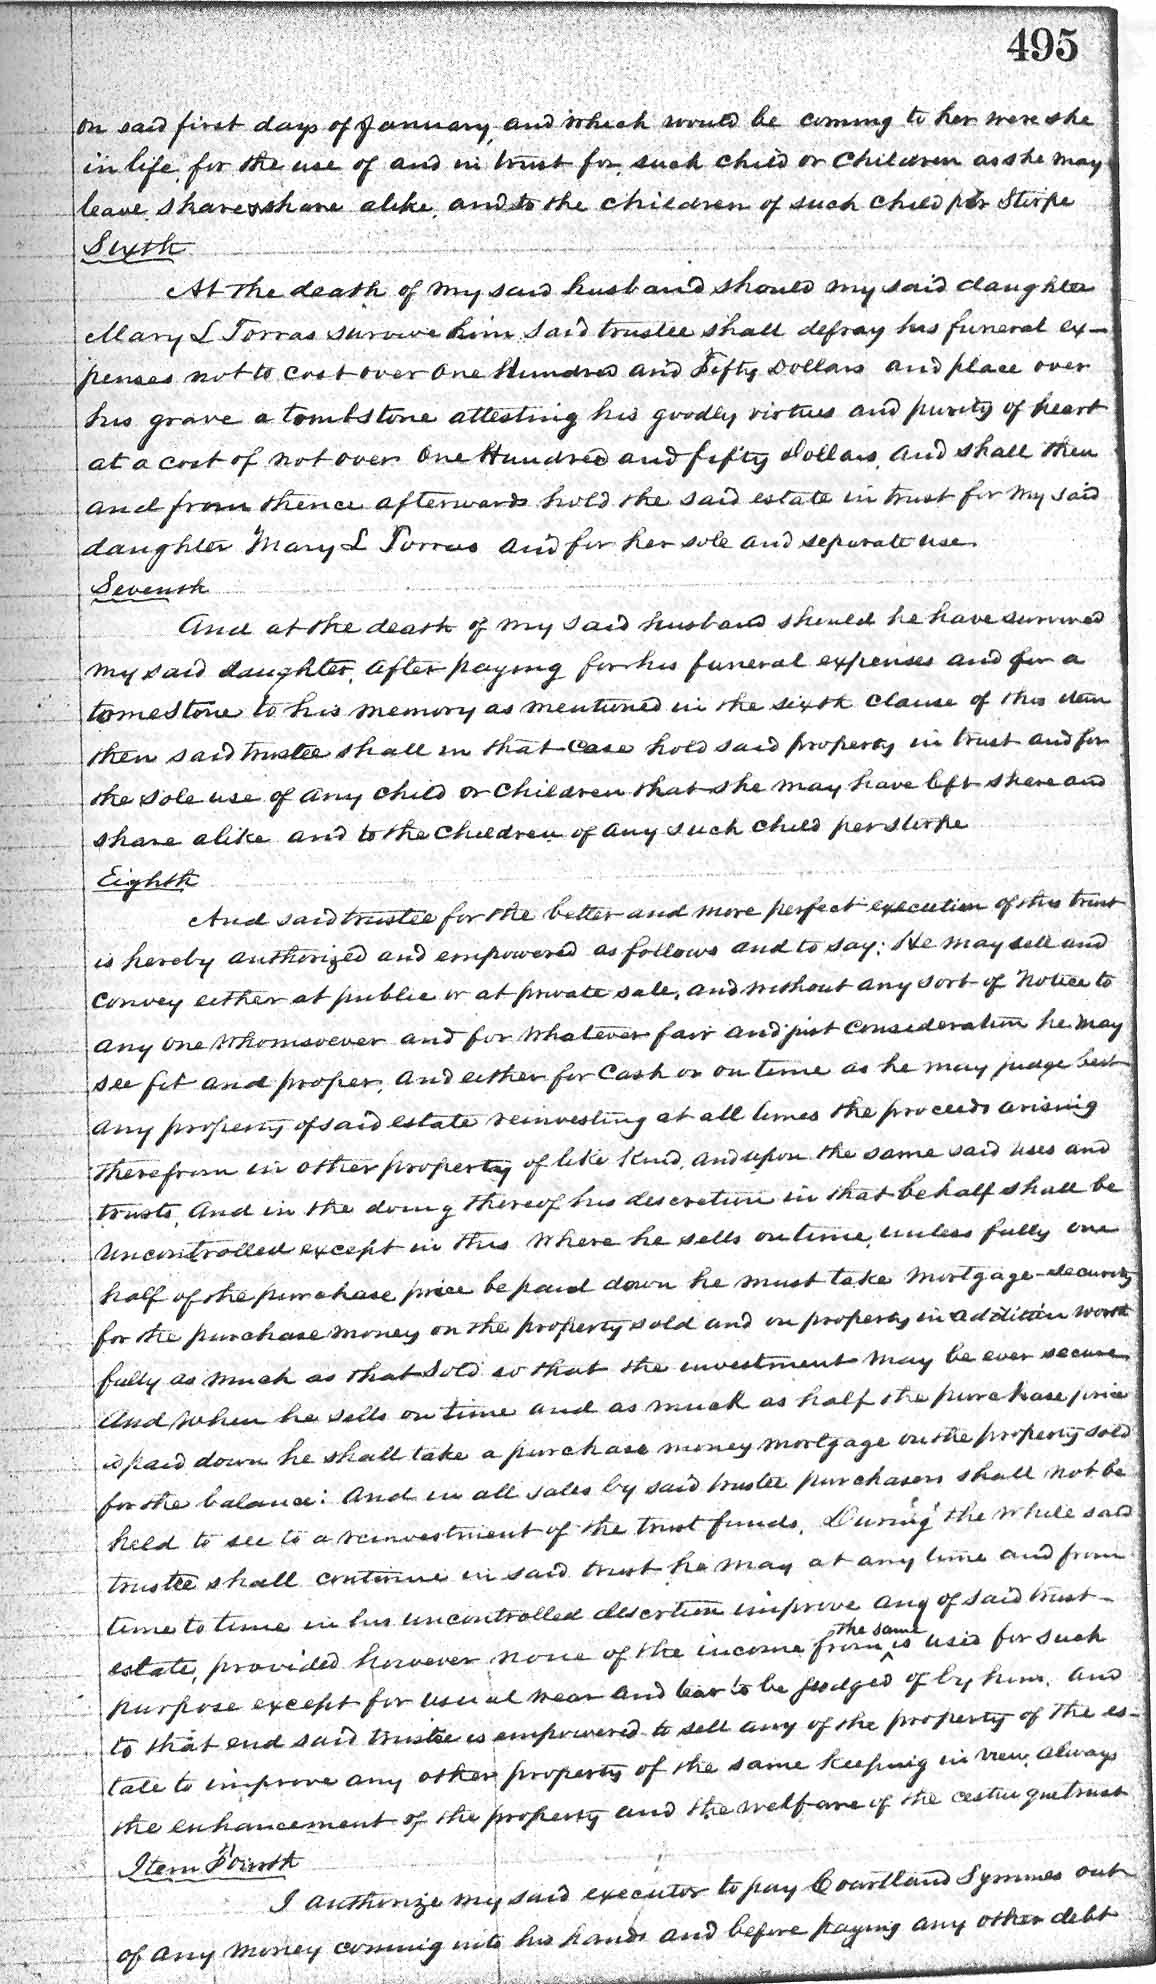 495
on said first days of January, and which would be coming to her were she
in life, for the use of and in trust for, such child or children as she may
leave, share & share alike, and to the children of such child per Stirpe
Sixth
At the death of my said husband should my said daughter
Mary L Torras survive him said trustee shall defray his funeral ex-
penses not to cost over One Hundred and Fifty Dollars and place over
his grave a tombstone attesting his goodly virtues and purity of heart
at a cost of not over One Hundred and fifty Dollars, and shall then
and from thence afterwards hold the said estate in trust for my said
daughter Mary L Torras and for her sole and separate use.
Seventh
And at the death of my said husband should he have survived
my said daughter, after paying for his funeral expenses and for a
tomestone to his memory as mentioned in the sixth clause of this item
then said trustee shall in that case hold said property in trust and for
the sole use of any child or children that she may have left share and
share alike and to the children of any such child per stirpe
Eighth
And said trustee for the better and more perfect execution of this trust
is hereby authorized and empowered as follows and to say: He may sell and
convey either at public or at private sale, and without any sort of notice to
any one whomsoever and for whatever fair and just consideration he may
see fit and proper, and either for cash or on time as he may judge best
any property of said estate reinvesting at all times the proceeds arising
therefrom in other property of like kind, and upon the same said uses and
trusts, and in the doing thereof his discretion in that behalf shall be
uncontrolled except in this where he sells on time, unless fully one
half of the purchase price be paid down he must take mortgage security
for the purchase money on the property sold and on property in addition worth
fully as much as that sold so that the investment may be ever secure.
And when he sells on time and as much as half the purchase price
is paid down he shall take a purchase money mortgage on the property sold
for the balance: And in all sales by said trustee purchasers shall not be
held to see to a reinvestment of the trust funds. During the while said
trustee shall continue in said trust he may at any time and from
time to time in his uncontrolled descrtion improve any of said trust-
estate, provided however none of the income from the same is used for such
purpose except for usual wear and tear to be judged of by him, and
to that end said trustee is empowered to sell any of the property of the es-
tate to improve any other property of the same keeping in view always
the enhancement of the property and the welfare of the cestui que trust
Item Fourth
I authorize my said executor to pay Courtland Symmes out
of any money coming into his hands and before paying any other debt